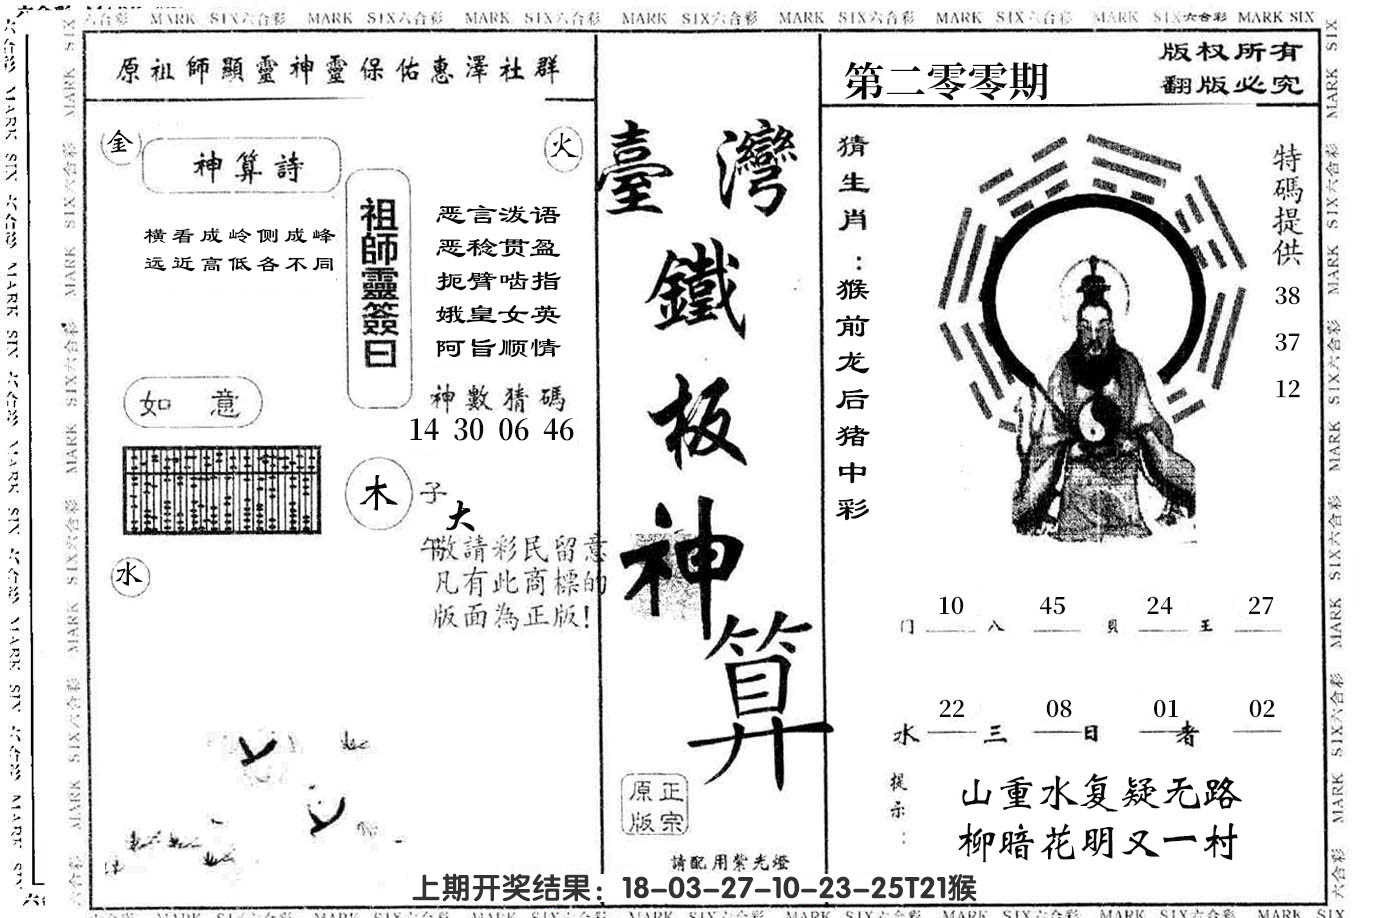 六合彩 MARK SIX六合彩 MARK SIX六合彩 MARK SIX六合彩 MARK SIX六合彩 MARK SIX六合彩 MARK SIX六合彩 MARK SIX六合彩 MARK SIX
原祖師顯靈神靈保佑惠澤社群
金
神算詩
火
横看成岭侧成峰
远近高低各不同
祖師靈簽曰
恶言泼语
恶稔贯盈
扼臂啮指
娥皇女英
阿旨顺情
神數猜碼
14 30 06 46
如 意
木
子
大
午
敬請彩民留意
凡有此商標的
版面為正版!
水
臺灣
鐵
板
神
算
正宗
原版
請配用紫光燈
第二零零期
版权所有
翻版必究
猜生肖:猴前龙后猪中彩
特碼提供
38
37
12
10 45 24 27
门 八 貝 王
22 08 01 02
水 三 日 者
提示:
山重水复疑无路
柳暗花明又一村
上期开奖结果：18-03-27-10-23-25T21猴